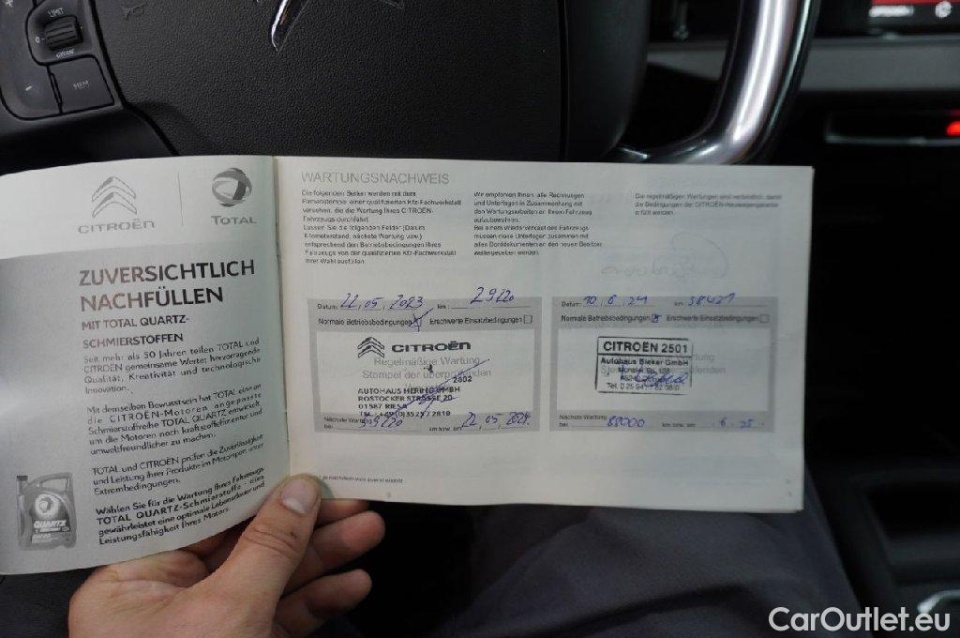 LIMIT
CITROËN
TOTAL
ZUVERSICHTLICH
NACHFÜLLEN
MIT TOTAL QUARTZ-
SCHMIERSTOFFEN
Seit mehr als 50 Jahren teilen TOTAL und
CITROËN gemeinsame Werte: hervorragende
Qualität, Kreativität und technologische
Innovation.
Mit demselben Bewusstsein hat TOTAL eine an
die CITROËN-Motoren angepasste
Schmierstoffreihe TOTAL QUARTZ entwickelt,
um die Motoren noch kraftstoffeffizienter und
umweltfreundlicher zu machen.
TOTAL und CITROËN prüfen die Zuverlässigkeit
und Leistung ihrer Produkte im Motorsport unter
Extrembedingungen.
Wählen Sie für die Wartung Ihres Fahrzeugs
TOTAL QUARTZ-Schmierstoffe - dies
gewährleistet eine optimale Lebensdauer und
Leistungsfähigkeit Ihres Motors.
QUARTZ
WARTUNGSNACHWEIS
Die folgenden Seiten werden mit dem
Firmenstempel einer qualifizierten Kfz-Fachwerkstatt
versehen, die die Wartung Ihres CITROËN-
Fahrzeugs durchführt.
Lassen Sie die folgenden Felder (Datum,
Kilometerstand, nächste Wartung usw.)
entsprechend den Betriebsbedingungen Ihres
Fahrzeugs von der qualifizierten Kfz-Fachwerkstatt
Ihrer Wahl ausfüllen.
Wir empfehlen Ihnen, alle Rechnungen
und Unterlagen in Zusammenhang mit
den Wartungsarbeiten an Ihrem Fahrzeug
aufzubewahren.
Bei einem Wiederverkauf des Fahrzeugs
müssen diese Unterlagen zusammen mit
allen Borddokumenten an den neuen Besitzer
weitergegeben werden.
Die regelmäßigen Wartungen sind verbindlich, damit
die Bedingungen der CITROËN-Neuwagengarantie
erfüllt werden.
Datum: 22.05.2023 km: 29220
Normale Betriebsbedingungen Erschwerte Einsatzbedingungen
CITROËN
Regelmäßige Wartung
Stempel der
2802
AUTOHAUS HERING GMBH
ROSTOCKER STRASSE 20
01587 RIESA
Nächste Wartung
bei: 59220 km bzw. 22.05.2024
Datum: 10.6.24 km: 58421
Normale Betriebsbedingungen Erschwerte Einsatzbedingungen
CITROËN 2501
Autohaus Bleker GmbH
Nächste Wartung
bei: 88000 km bzw. am:
CarOutlet.eu